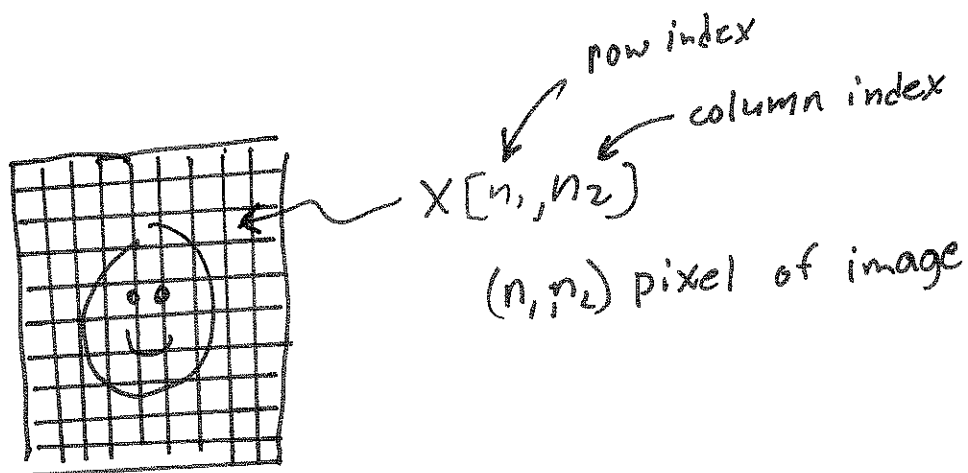 row index
column index
X[n₁,n₂]
(n₁,n₂) pixel of image